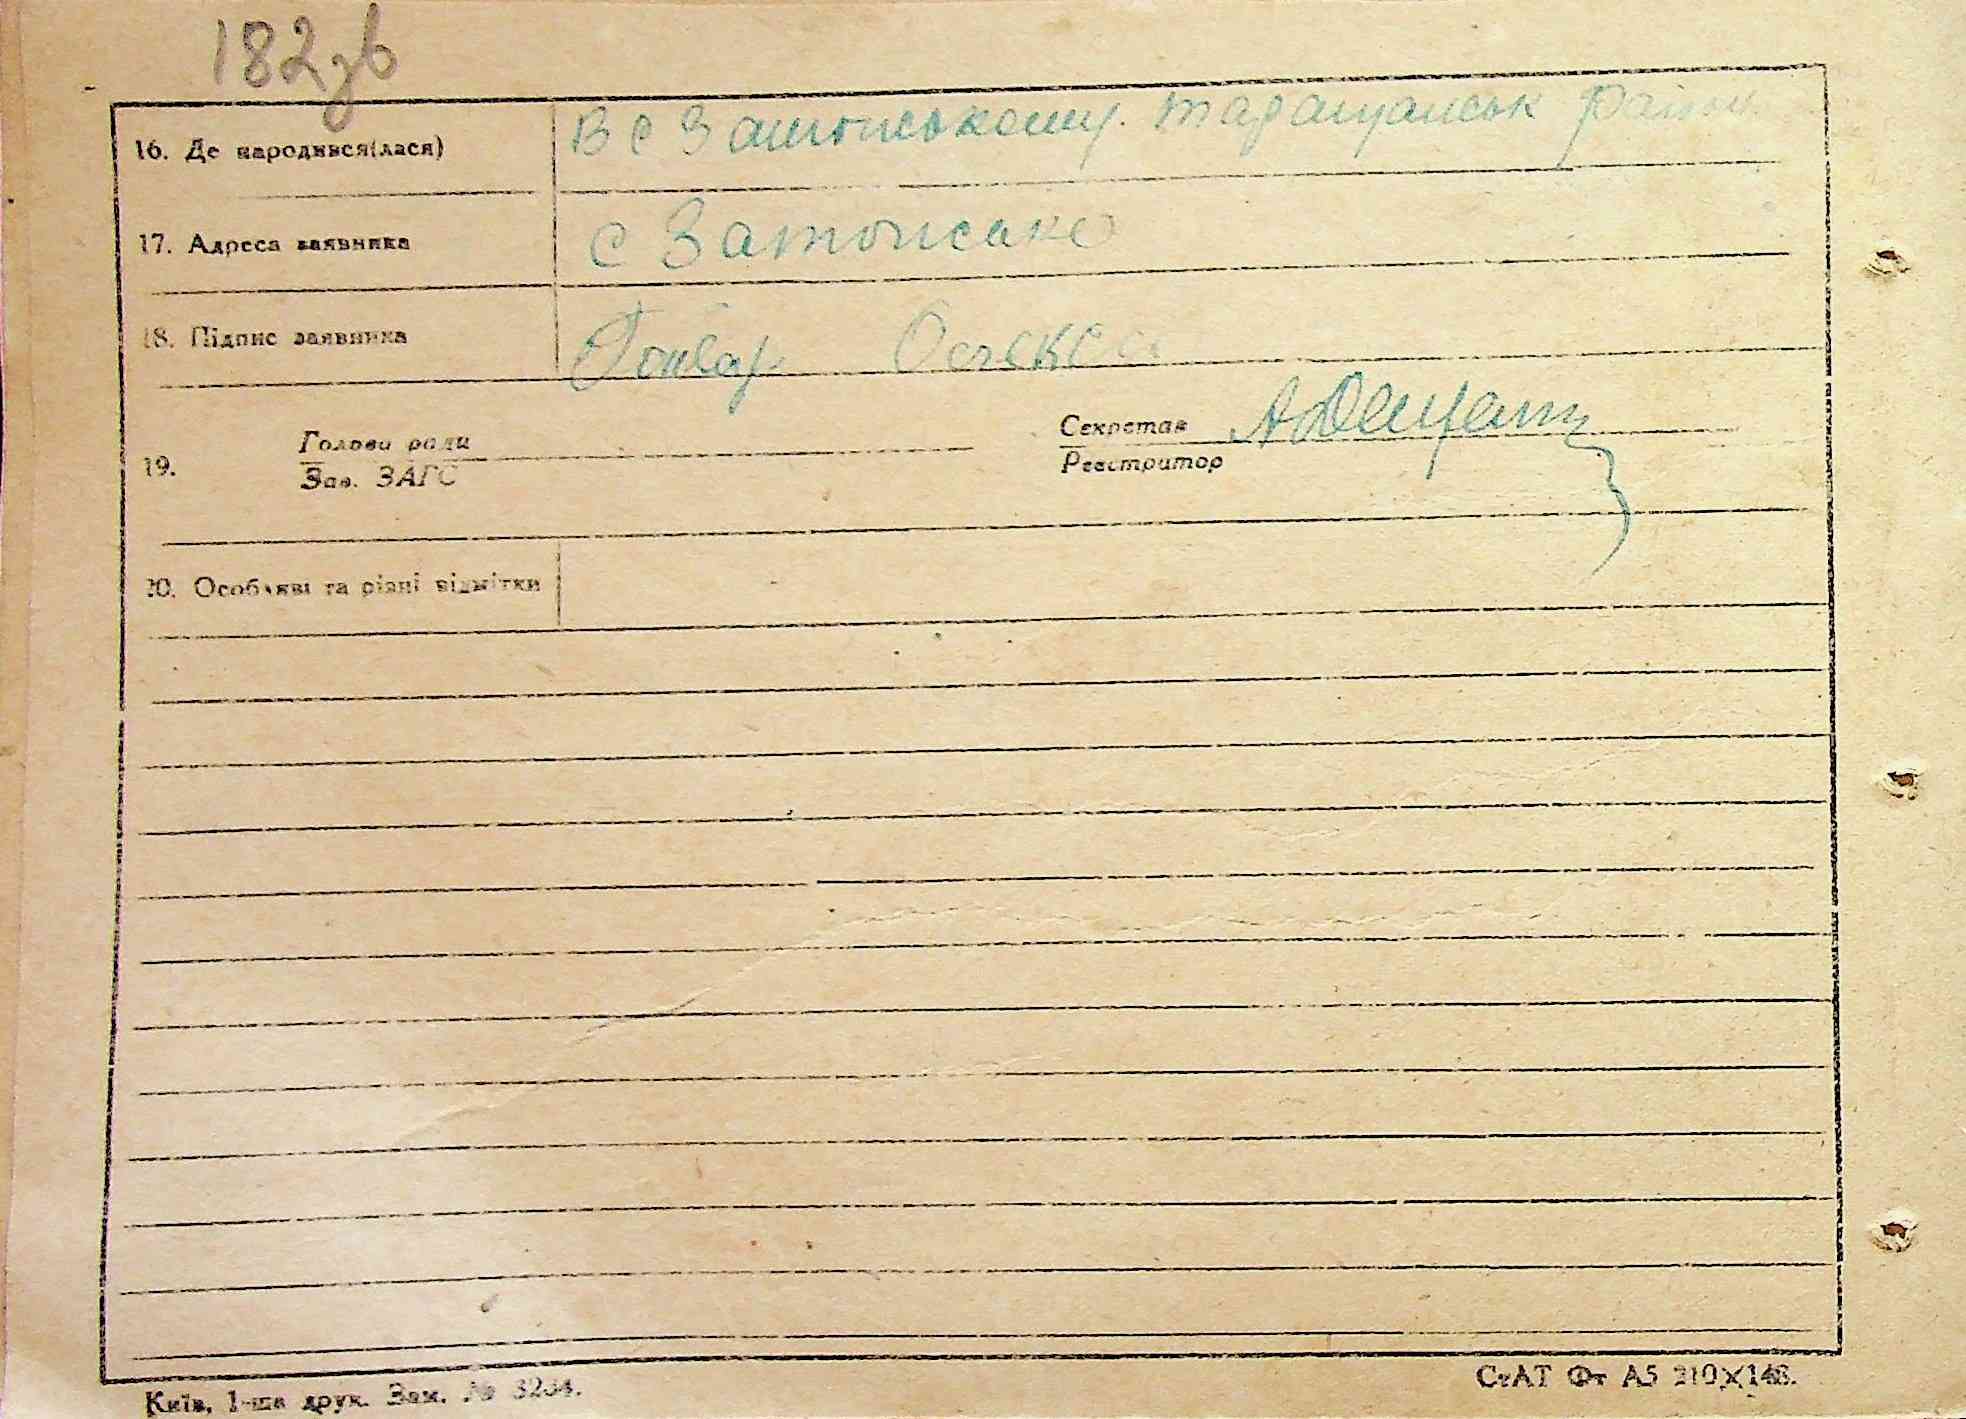 182зв
16. Де народився(лася) В с Затонському. Таращанськ район
17. Адреса заявника с Затонське
18. Підпис заявника Гончар Олекса
19. Голова ради Секретар
Зав. ЗАГС Реєстратор
20. Особливі та різні відмітки
Київ, 1-ша друк. Зам. № 3264.
СтАТ Фт А5 210×148.